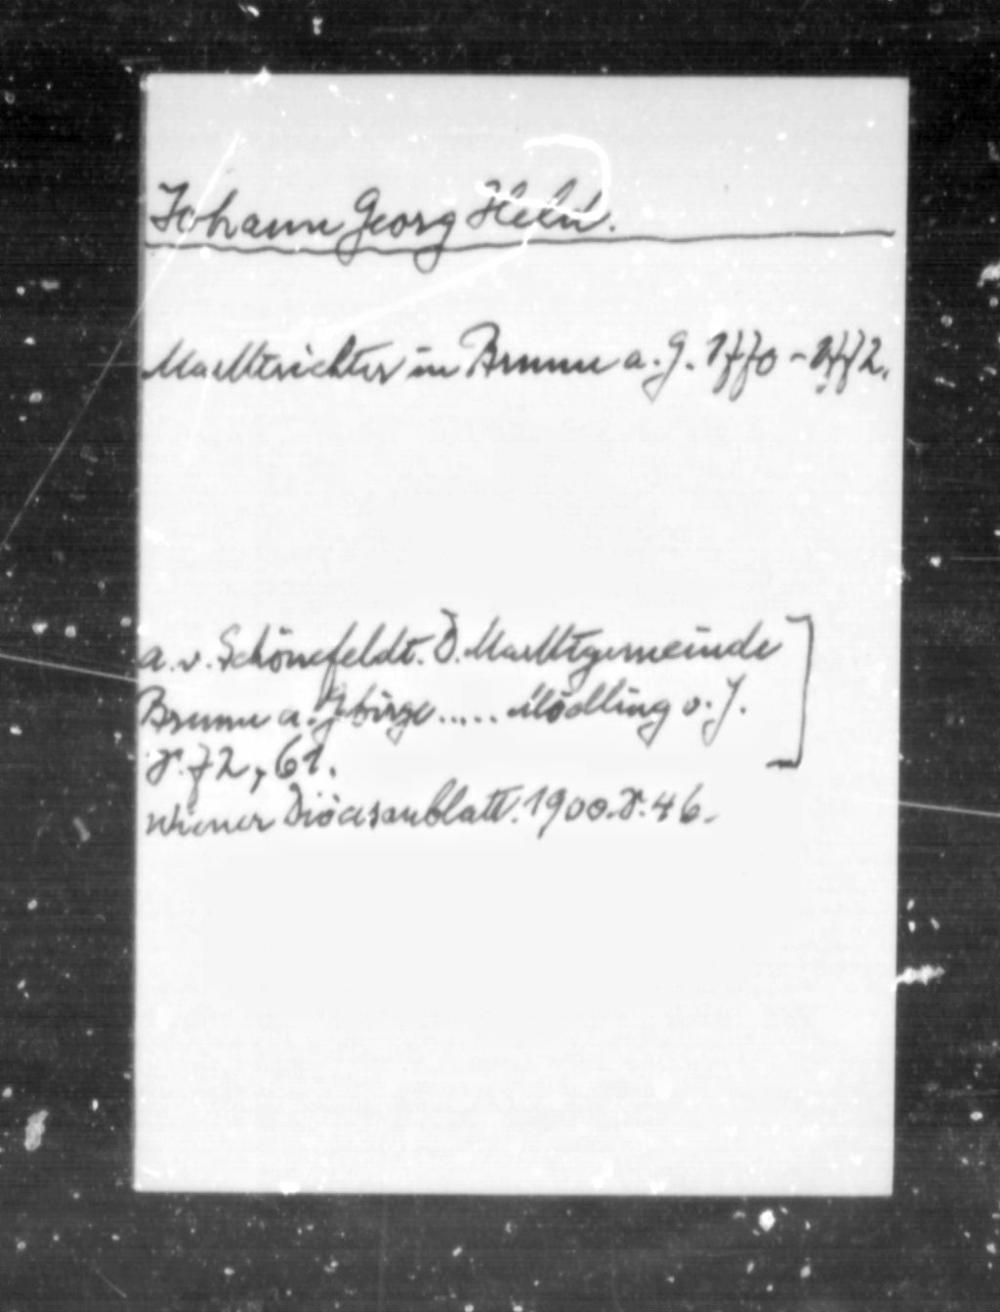 Johann Georg Held.
Marktrichter in Brunn a. G. 1770 - 1772.
A. v. Schönefeldt. D. Marktgemeinde
Brunn a. Gbirge ..... Mödling o. J.
S. 72, 61.
Wiener Diöcesanblatt. 1900. S. 46.